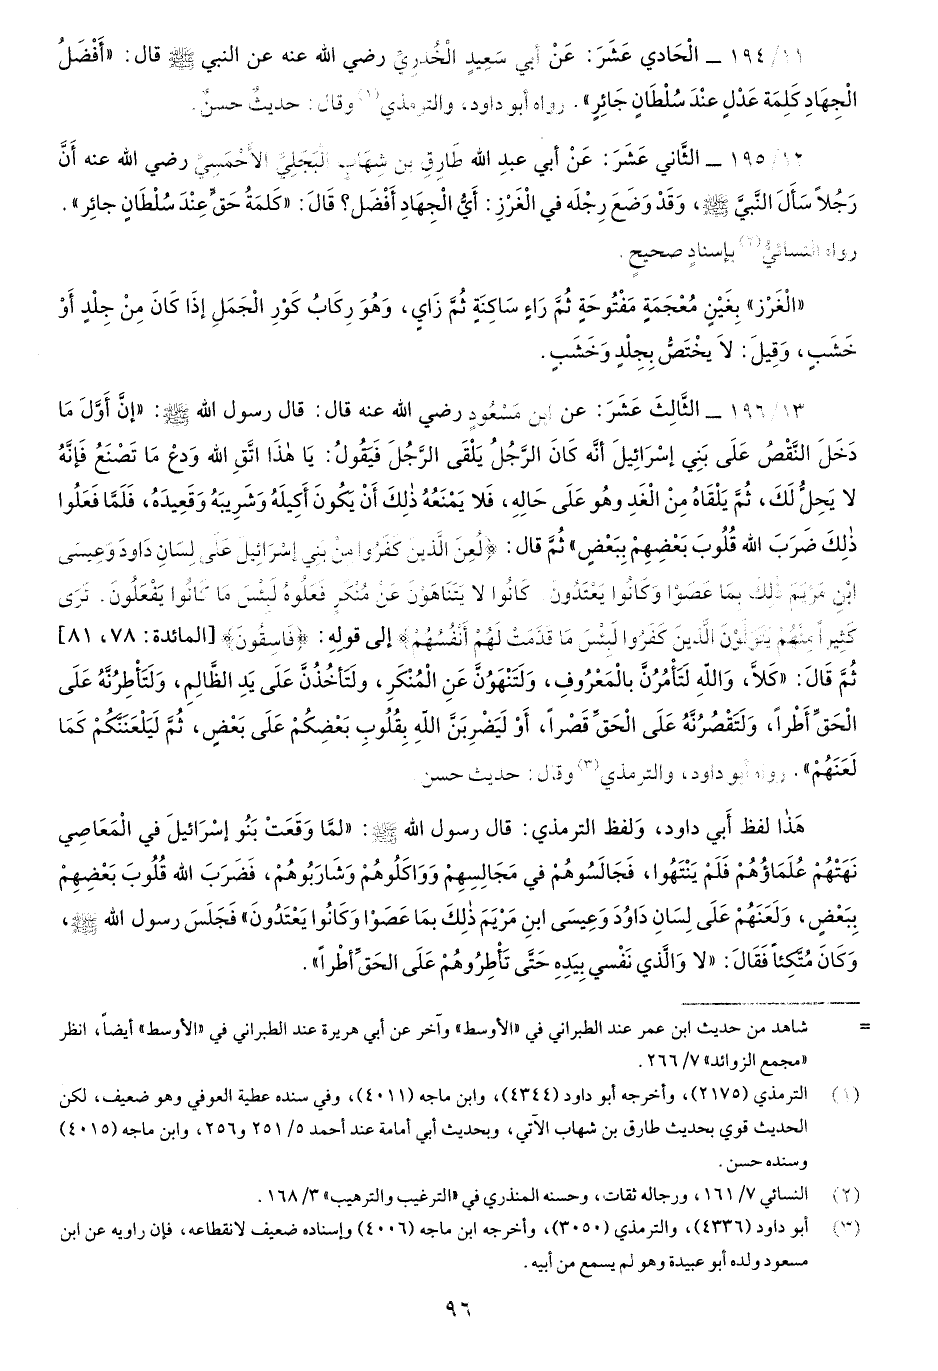 ١٩٤/١١ ـ الْحَادي عَشَرَ: عَنْ أبي سَعِيدٍ الْخُدرِيِّ رضي الله عنه عن النبي ﷺ قال: «أَفْضَلُ
الْجِهَادِ كَلِمَة عَدْلٍ عِنْدَ سُلْطَانٍ جَائِرٍ». رواه أبو داود، والترمذي(١) وقال: حديثٌ حسنٌ.
١٩٥/١٢ ـ الثَّاني عَشَرَ: عَنْ أبي عبدِ الله طَارِقِ بنِ شِهَابٍ الْبَجَلِيِّ الأَحْمَسِيِّ رضي الله عنه أَنَّ
رَجُلاً سَأَلَ النَّبيَّ ﷺ، وَقَدْ وَضَعَ رِجْلَه في الْغَرْزِ: أَيُّ الْجِهَادِ أَفْضَل؟ قَالَ: «كَلِمَةُ حَقٍّ عِنْدَ سُلْطَانٍ جائِرٍ».
رواه النسائيُّ(٢) بإسنادٍ صحيحٍ.
«الْغَرْز» بِغَيْنٍ مُعْجَمَةٍ مَفْتُوحَةٍ ثُمَّ رَاءٍ سَاكِنَةٍ ثُمَّ زَايٍ، وَهُوَ رِكَابُ كَوْرِ الْجَمَلِ إذَا كَانَ مِنْ جِلْدٍ أَوْ
خَشَبٍ، وَقِيلَ: لاَ يَخْتَصُّ بِجِلْدٍ وَخَشَبٍ.
١٩٦/١٣ ـ الثَّالِثَ عَشَرَ: عن ابنِ مَسْعُودٍ رضي الله عنه قال: قال رسول الله ﷺ: «إنَّ أَوَّلَ مَا
دَخَلَ النَّقْصُ عَلَى بَنِي إسْرَائِيلَ أَنَّه كَانَ الرَّجُلُ يَلْقَى الرَّجُلَ فَيَقُولُ: يَا هٰذَا اتَّقِ الله وَدعْ مَا تَصْنَعُ فَإنَّهُ
لا يَحِلُّ لَكَ، ثُمَّ يَلْقَاهُ مِنْ الْغَدِ وهُو عَلَى حَالِهِ، فَلا يَمْنَعُهُ ذٰلِكَ أَنْ يَكُونَ أكِيلَهُ وَشَرِيبَهُ وَقَعِيدَهُ، فَلَمَّا فَعَلُوا
ذٰلِكَ ضَرَبَ الله قُلُوبَ بَعْضِهِمْ بِبَعْضٍ» ثُمَّ قال: ﴿لُعِنَ الَّذِينَ كَفَرُوا مِنْ بَنِي إسْرَائِيلَ عَلَى لِسَانِ دَاودَ وَعِيسَى
ابْنِ مَرْيَمَ ذٰلِكَ بِمَا عَصَوْا وَكَانُوا يَعْتَدُونَ كَانُوا لا يَتَنَاهَوْنَ عَنْ مُنْكَرٍ فَعَلُوهُ لَبِئْسَ مَا كَانُوا يَفْعَلُونَ. تَرَى
كَثِيراً مِنْهُمْ يَتَوَلَّوْنَ الَّذِينَ كَفَرُوا لَبِئْسَ مَا قَدَّمَتْ لَهُمْ أَنْفُسُهُمْ﴾ إلى قولِهِ: ﴿فَاسِقُونَ﴾ [المائدة: ٧٨، ٨١]
ثُمَّ قَالَ: «كَلَّا، وَاللَّهِ لَتَأْمُرُنَّ بالْمَعْرُوفِ، وَلَتَنْهَوُنَّ عَنِ الْمُنْكَرِ، ولَتَأخُذُنَّ عَلَى يَدِ الظَّالِمِ، وَلَتَأْطِرُنَّهُ عَلَى
الْحَقِّ أطْراً، وَلَتَقْصُرُنَّهُ عَلَى الْحَقِّ قَصْراً، أَوْ لَيَضْرِبَنَّ اللَّهِ بِقُلُوبِ بَعْضِكُمْ عَلَى بَعْضٍ، ثُمَّ لَيَلْعَنَنَّكُمْ كَمَا
لَعَنَهُمْ». رواه أبو داود، والترمذي(٣) وقال: حديث حسن.
هَذَا لفظ أَبي داود، وَلفظ الترمذي: قال رسول الله ﷺ: «لمَّا وَقَعَتْ بَنُو إسْرَائيلَ في الْمَعَاصِي
نَهَتْهُمْ عُلَمَاؤُهُمْ فَلَمْ يَنْتَهُوا، فَجَالَسُوهُمْ في مَجَالِسِهِمْ وَوَاكَلُوهُمْ وَشَارَبُوهُمْ، فَضَرَبَ الله قُلُوبَ بَعْضِهِمْ
بِبَعْضٍ، وَلَعَنَهُمْ عَلَى لِسَانِ دَاوُدَ وَعِيسَى ابنِ مَرْيَم ذَلِكَ بمَا عَصَوْا وَكَانُوا يَعْتَدُونَ» فَجَلَسَ رسول الله ﷺ،
وَكَانَ مُتَّكِئاً فَقَالَ: «لا وَالَّذي نَفْسي بِيَدِهِ حَتَّى تَأْطِرُوهُمْ عَلَى الحَقِّ أَطْراً».
= شاهد من حديث ابن عمر عند الطبراني في «الأوسط» وآخر عن أبي هريرة عند الطبراني في «الأوسط» أيضاً، انظر
«مجمع الزوائد» ٧/ ٢٦٦.
(١) الترمذي (٢١٧٥)، وأخرجه أبو داود (٤٣٤٤)، وابن ماجه (٤٠١١)، وفي سنده عطية العوفي وهو ضعيف، لكن
الحديث قوي بحديث طارق بن شهاب الآتي، وبحديث أبي أمامة عند أحمد ٥/ ٢٥١ و٢٥٦، وابن ماجه (٤٠١٥)
وسنده حسن.
(٢) النسائي ٧/ ١٦١، ورجاله ثقات، وحسنه المنذري في «الترغيب والترهيب» ٣/ ١٦٨.
(٣) أبو داود (٤٣٣٦)، والترمذي (٣٠٥٠)، وأخرجه ابن ماجه (٤٠٠٦) وإسناده ضعيف لانقطاعه، فإن راويه عن ابن
مسعود ولده أبو عبيدة وهو لم يسمع من أبيه.
٩٦